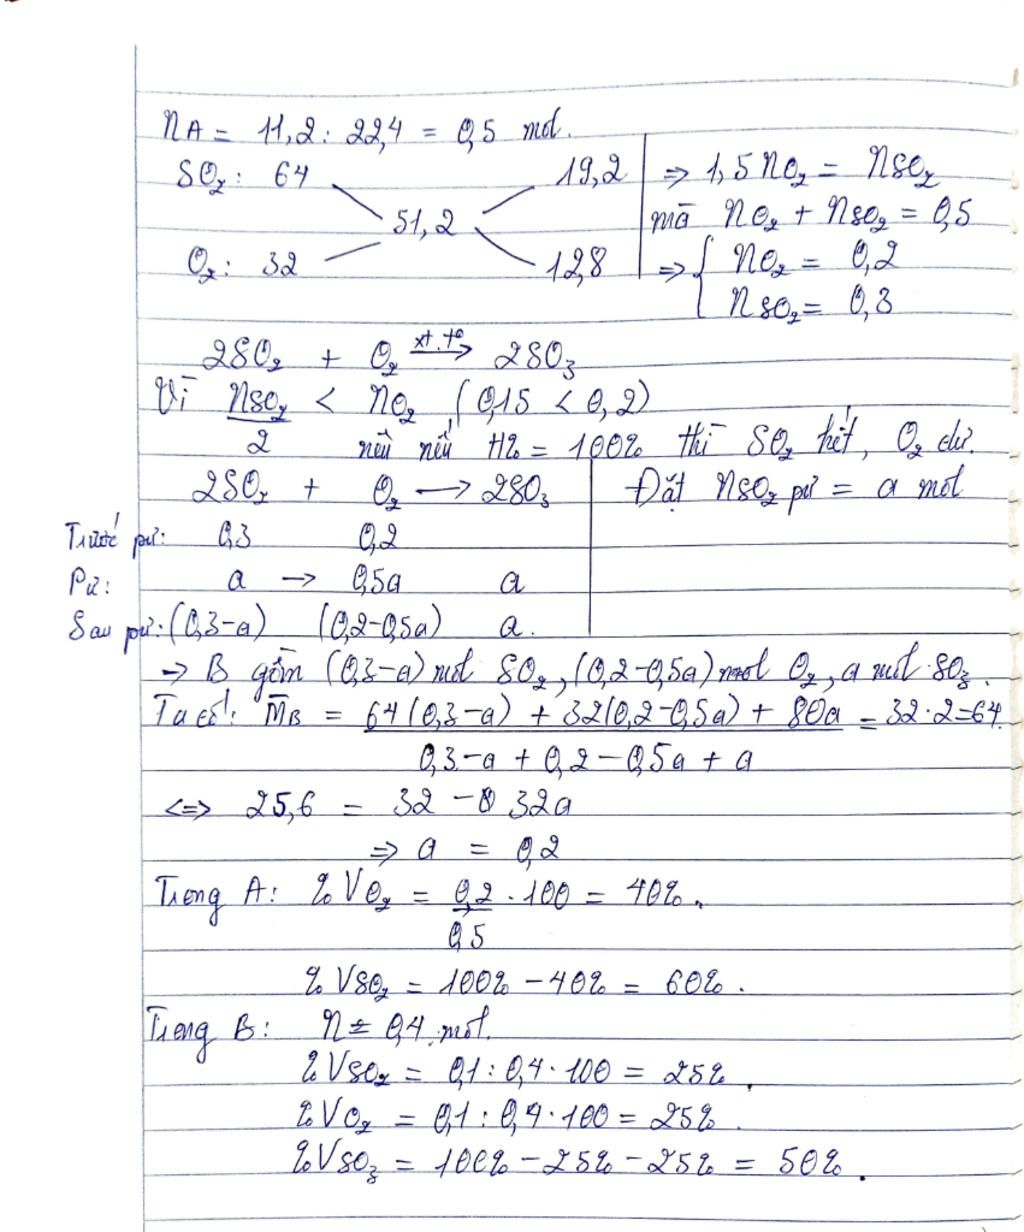 nA = 11,2 : 22,4 = 0,5 mol.
SO₂: 64 19,2 ⇒ 1,5 nO₂ = nSO₂
51,2 mà nO₂ + nSO₂ = 0,5
O₂: 32 12,8 ⇒ { nO₂ = 0,2
nSO₂ = 0,3
2SO₂ + O₂ xt, t° → 2SO₃
Vì nSO₂/2 < nO₂ (0,15 < 0,2)
nên nếu H% = 100% thì SO₂ hết, O₂ dư.
2SO₂ + O₂ → 2SO₃ Đặt nSO₂ pư = a mol
Trước pư: 0,3 0,2
Pư: a → 0,5a a
Sau pư: (0,3-a) (0,2-0,5a) a.
→ B gồm (0,3-a) mol SO₂, (0,2-0,5a) mol O₂, a mol SO₃.
Ta có: M̄B = 64(0,3-a) + 32(0,2-0,5a) + 80a = 32·2=64
0,3-a + 0,2-0,5a + a
<=> 25,6 = 32 - 32a
⇒ a = 0,2
Trong A: %VO₂ = 0,2/0,5 · 100 = 40%.
%VSO₂ = 100% - 40% = 60%.
Trong B: n = 0,4 mol.
%VSO₂ = 0,1 : 0,4 · 100 = 25%.
%VO₂ = 0,1 : 0,4 · 100 = 25%.
%VSO₃ = 100% - 25% - 25% = 50%.